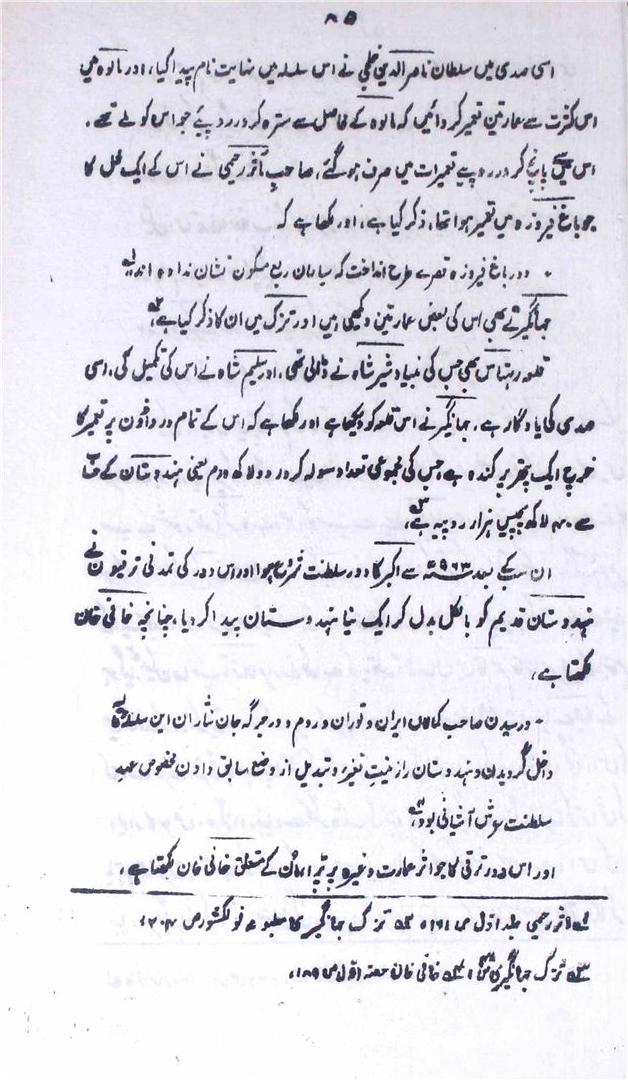 ۸۵
اسی صدی میں سلطان ناصر الدین خلجی نے اس سلسلہ میں نہایت نام پیدا کیا، اور مالوہ میں
اس کثرت سے عمارتین تعمیر کروائیں کہ مالوہ کے فاصل سے سترہ کرور روپیے جو اس کو ملے تھے،
اس میں پانچ کرور روپیے تعمیرات میں صرف ہو گئے، صاحبِ مآثر رحیمی نے اس کے ایک محل کا
جو باغ فیروزہ میں تعمیر ہوا تھا، ذکر کیا ہے، اور لکھا ہے کہ
" ودر باغ فیروزہ قصرے طرح انداخت کہ سیاحان ربع مسکون نشان ندادہ اند"
جہانگیر نے بھی اس کی بعض عمارتین دیکھی ہیں اور تزک میں ان کا ذکر کیا ہے،
قلعہ رہتاس بھی جس کی بنیاد شیر شاہ نے ڈالی تھی، اور سلیم شاہ نے اس کی تکمیل کی، اسی
صدی کی یادگار ہے، جہانگیر نے اس قلعہ کو دیکھا ہے اور لکھا ہے کہ اس کے تمام دروازون پر تعمیر کا
خرچ ایک پتھر پر کندہ ہے جس کی مجموعی تعداد سولہ کرور دو لاکھ دوم یعنی ہندوستان کے حساب
سے ۴۰ لاکھ پچیس ہزار روپیہ ہے،
ان سب کے بعد ۹۶۳ھ سے اکبر کا دور سلطنت شروع ہوا اور اس دور کی تمدنی ترقیون نے
ہندوستان قدیم کو بالکل بدل کر ایک نیا ہندوستان پیدا کر دیا، چنانچہ خافی خان
لکھتا ہے،
" ورسیدن صاحب کمالان ایران و توران و روم و در جرگہ جان نثاران این سلسلہ
داخل گردیدن و ہندوستان را زینت تغیر و تبدیل از وضع سابق دادن مخصوص عہد
سلطنت عرش آشیانی بود،
اور اس دور ترقی کا جو اثر عمارت وغیرہ پر پڑا، اس کے متعلق خافی خان لکھتا ہے،
لہ مآثر رحیمی جلد اول ص ۱۶۱، ۲ہ تزک جہانگیری مطبوعہ نولکشور ص ۲۰۴،
۳ہ تزک جہانگیری ۴ہ خافی خان حصہ اول ص ۱۸۹،